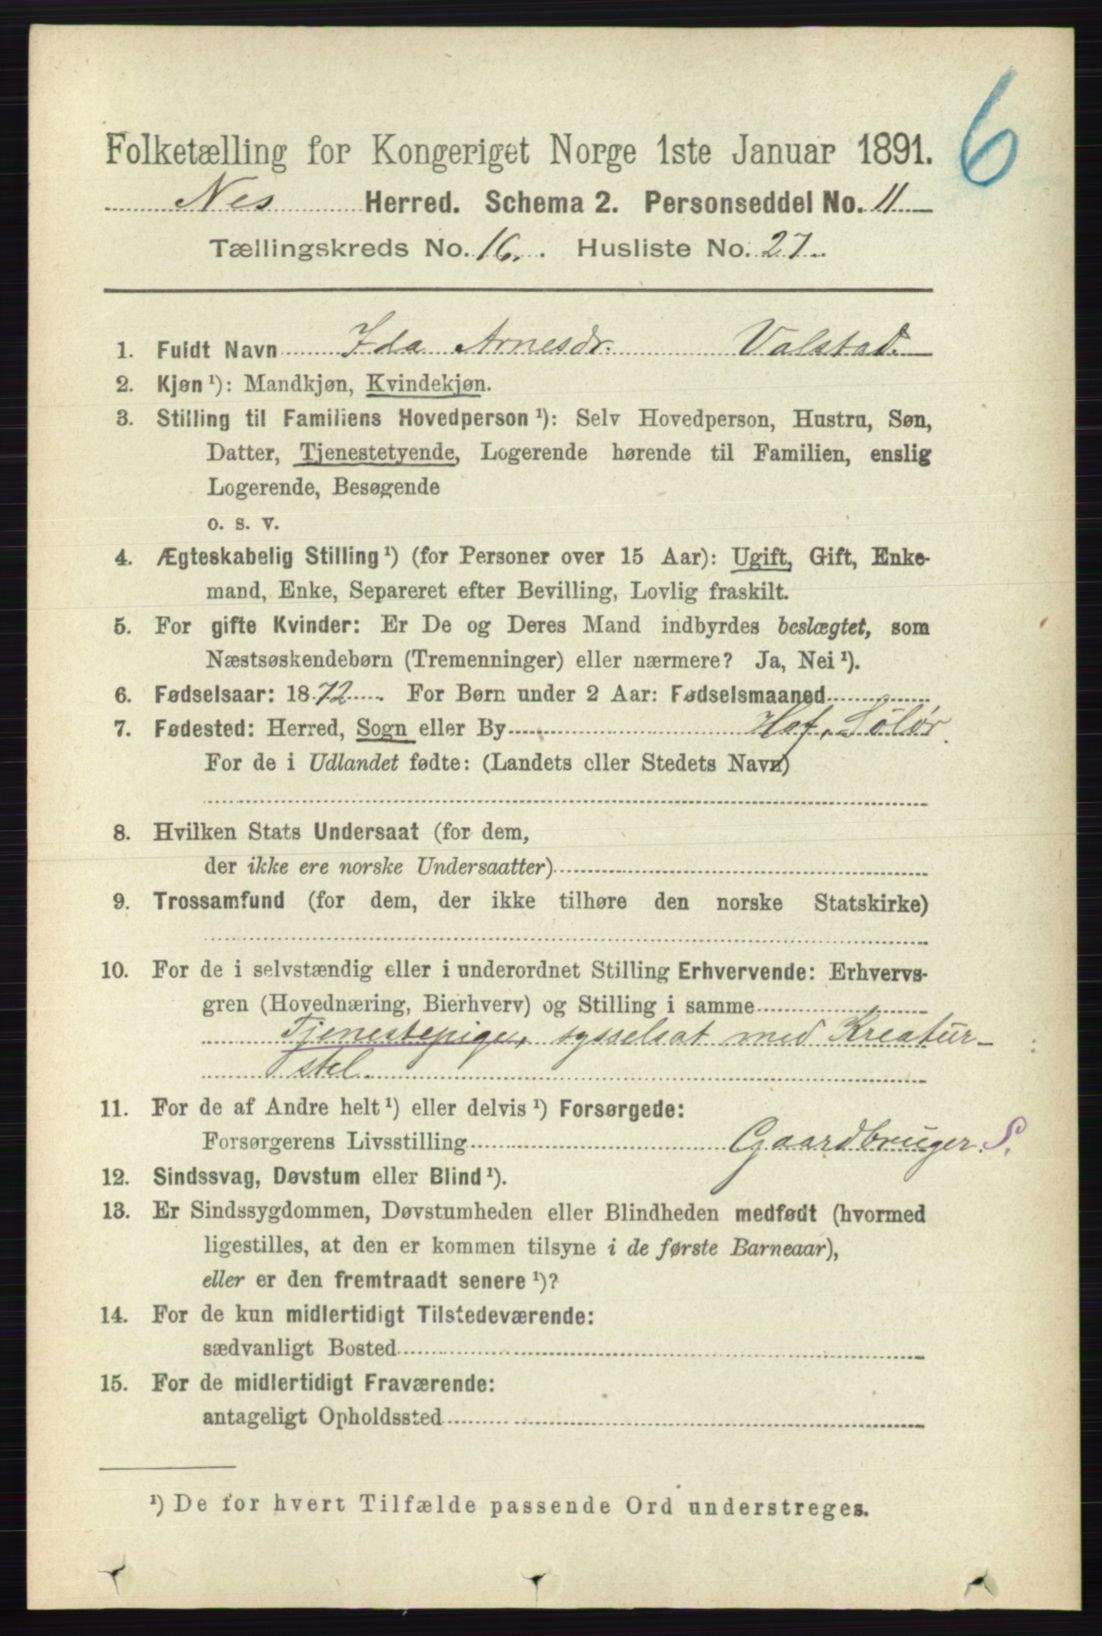 6
Folketælling for Kongeriget Norge 1ste Januar 1891.
Nes Herred. Schema 2. Personseddel No. 11
Tællingskreds No. 16. Husliste No. 27
1. Fuldt Navn Ida Arnesdr. Valstad.
2. Kjøn ¹): Mandkjøn, Kvindekjøn.
3. Stilling til Familiens Hovedperson ¹): Selv Hovedperson, Hustru, Søn,
Datter, Tjenestetyende, Logerende hørende til Familien, enslig
Logerende, Besøgende
o. s. v.
4. Ægteskabelig Stilling ¹) (for Personer over 15 Aar): Ugift, Gift, Enke-
mand, Enke, Separeret efter Bevilling, Lovlig fraskilt.
5. For gifte Kvinder: Er De og Deres Mand indbyrdes beslægtet, som
Næstsøskendebørn (Tremenninger) eller nærmere? Ja, Nei ¹).
6. Fødselsaar: 1872. For Børn under 2 Aar: Fødselsmaaned
7. Fødested: Herred, Sogn eller By Hof, Solør.
For de i Udlandet fødte: (Landets eller Stedets Navn)
8. Hvilken Stats Undersaat (for dem,
der ikke ere norske Undersaatter)
9. Trossamfund (for dem, der ikke tilhøre den norske Statskirke)
10. For de i selvstændig eller i underordnet Stilling Erhvervende: Erhvervs-
gren (Hovednæring, Bierhverv) og Stilling i samme
Tjenestepige, sysselsat med Kreatur-
stel.
11. For de af Andre helt ¹) eller delvis ¹) Forsørgede:
Forsørgerens Livsstilling Gaardbruger. S.
12. Sindssvag, Døvstum eller Blind ¹).
13. Er Sindssygdommen, Døvstumheden eller Blindheden medfødt (hvormed
ligestilles, at den er kommen tilsyne i de første Barneaar),
eller er den fremtraadt senere ¹)?
14. For de kun midlertidigt Tilstedeværende:
sædvanligt Bosted
15. For de midlertidigt Fraværende:
antageligt Opholdssted
¹) De for hvert Tilfælde passende Ord understreges.